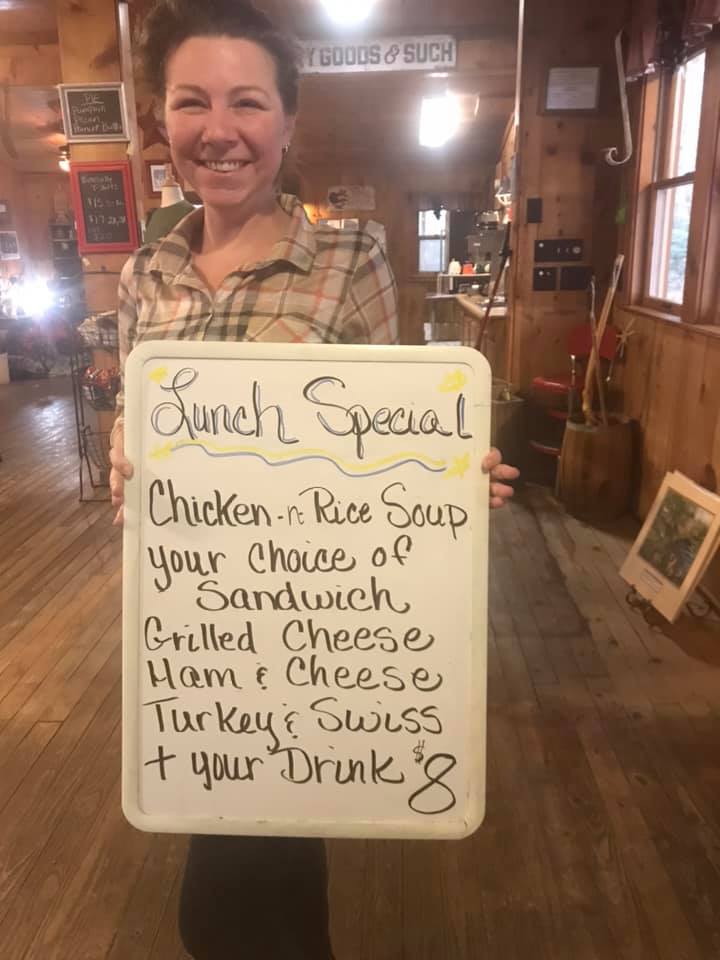 Y GOODS & SUCH
PIE
Pumpkin
Pecan
Peanut Butter
Lunch Special
Chicken-n-Rice Soup
your Choice of
Sandwich
Grilled Cheese
Ham & Cheese
Turkey & Swiss
+ your Drink $8